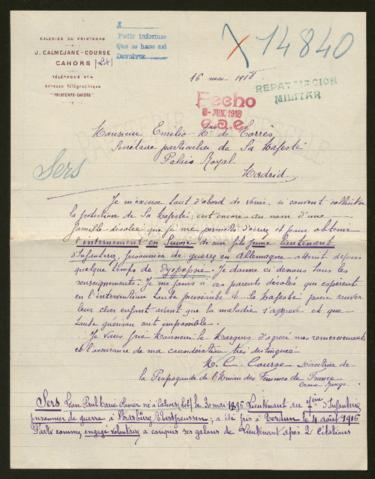 GALERIES DU PRINTEMPS
J. CALMEJANE-COURSE
CAHORS (Lot)
TÉLÉPHONE N° 4
Adresse Télégraphique
"PRINTEMPS-CAHORS"
X
Pedir informes
Que se hace así
Devolver
X 14840
16 mai 1918
Fecho
8-JUN. 1918
REPATRIACION
MILITAR
Monsieur Emilio Mª de Torrès
Secrétaire particulier de Sa Majesté
Palais Royal
Madrid
Sers
Je m'excuse tout d'abord de venir, si souvent solliciter
la protection de Sa Majesté; c'est encore au nom d'une
famille désolée que je me permets d'écrire et pour obtenir
l'internement en Suisse de son fils jeune Lieutenant
d'Infanterie, prisonnier de guerre en Allemagne atteint depuis
quelque temps de dyspepsie. Je donne ci dessous tous les
renseignements. Je me joins à ces parents désolés qui espèrent
en l'intervention toute puissante de Sa Majesté pour sauver
leur cher enfant avant que la maladie s'aggrave et que
toute guérison soit impossible.
Je vous prie Monsieur le Marquis d'agréer nos remerciements
et l'assurance de ma considération très distinguée
C. Course
la Propagande de l'Union des Femmes de France
Sers Jean Paul né à Cahors (Lot) le 30 mai 1895 Lieutenant au 7ème d'Infanterie
prisonnier de guerre à Strasburg Westpreussen; a été pris à Verdun le 4 août 1916
Parti comme engagé volontaire a conquis ses galons de Lieutenant après 2 citations